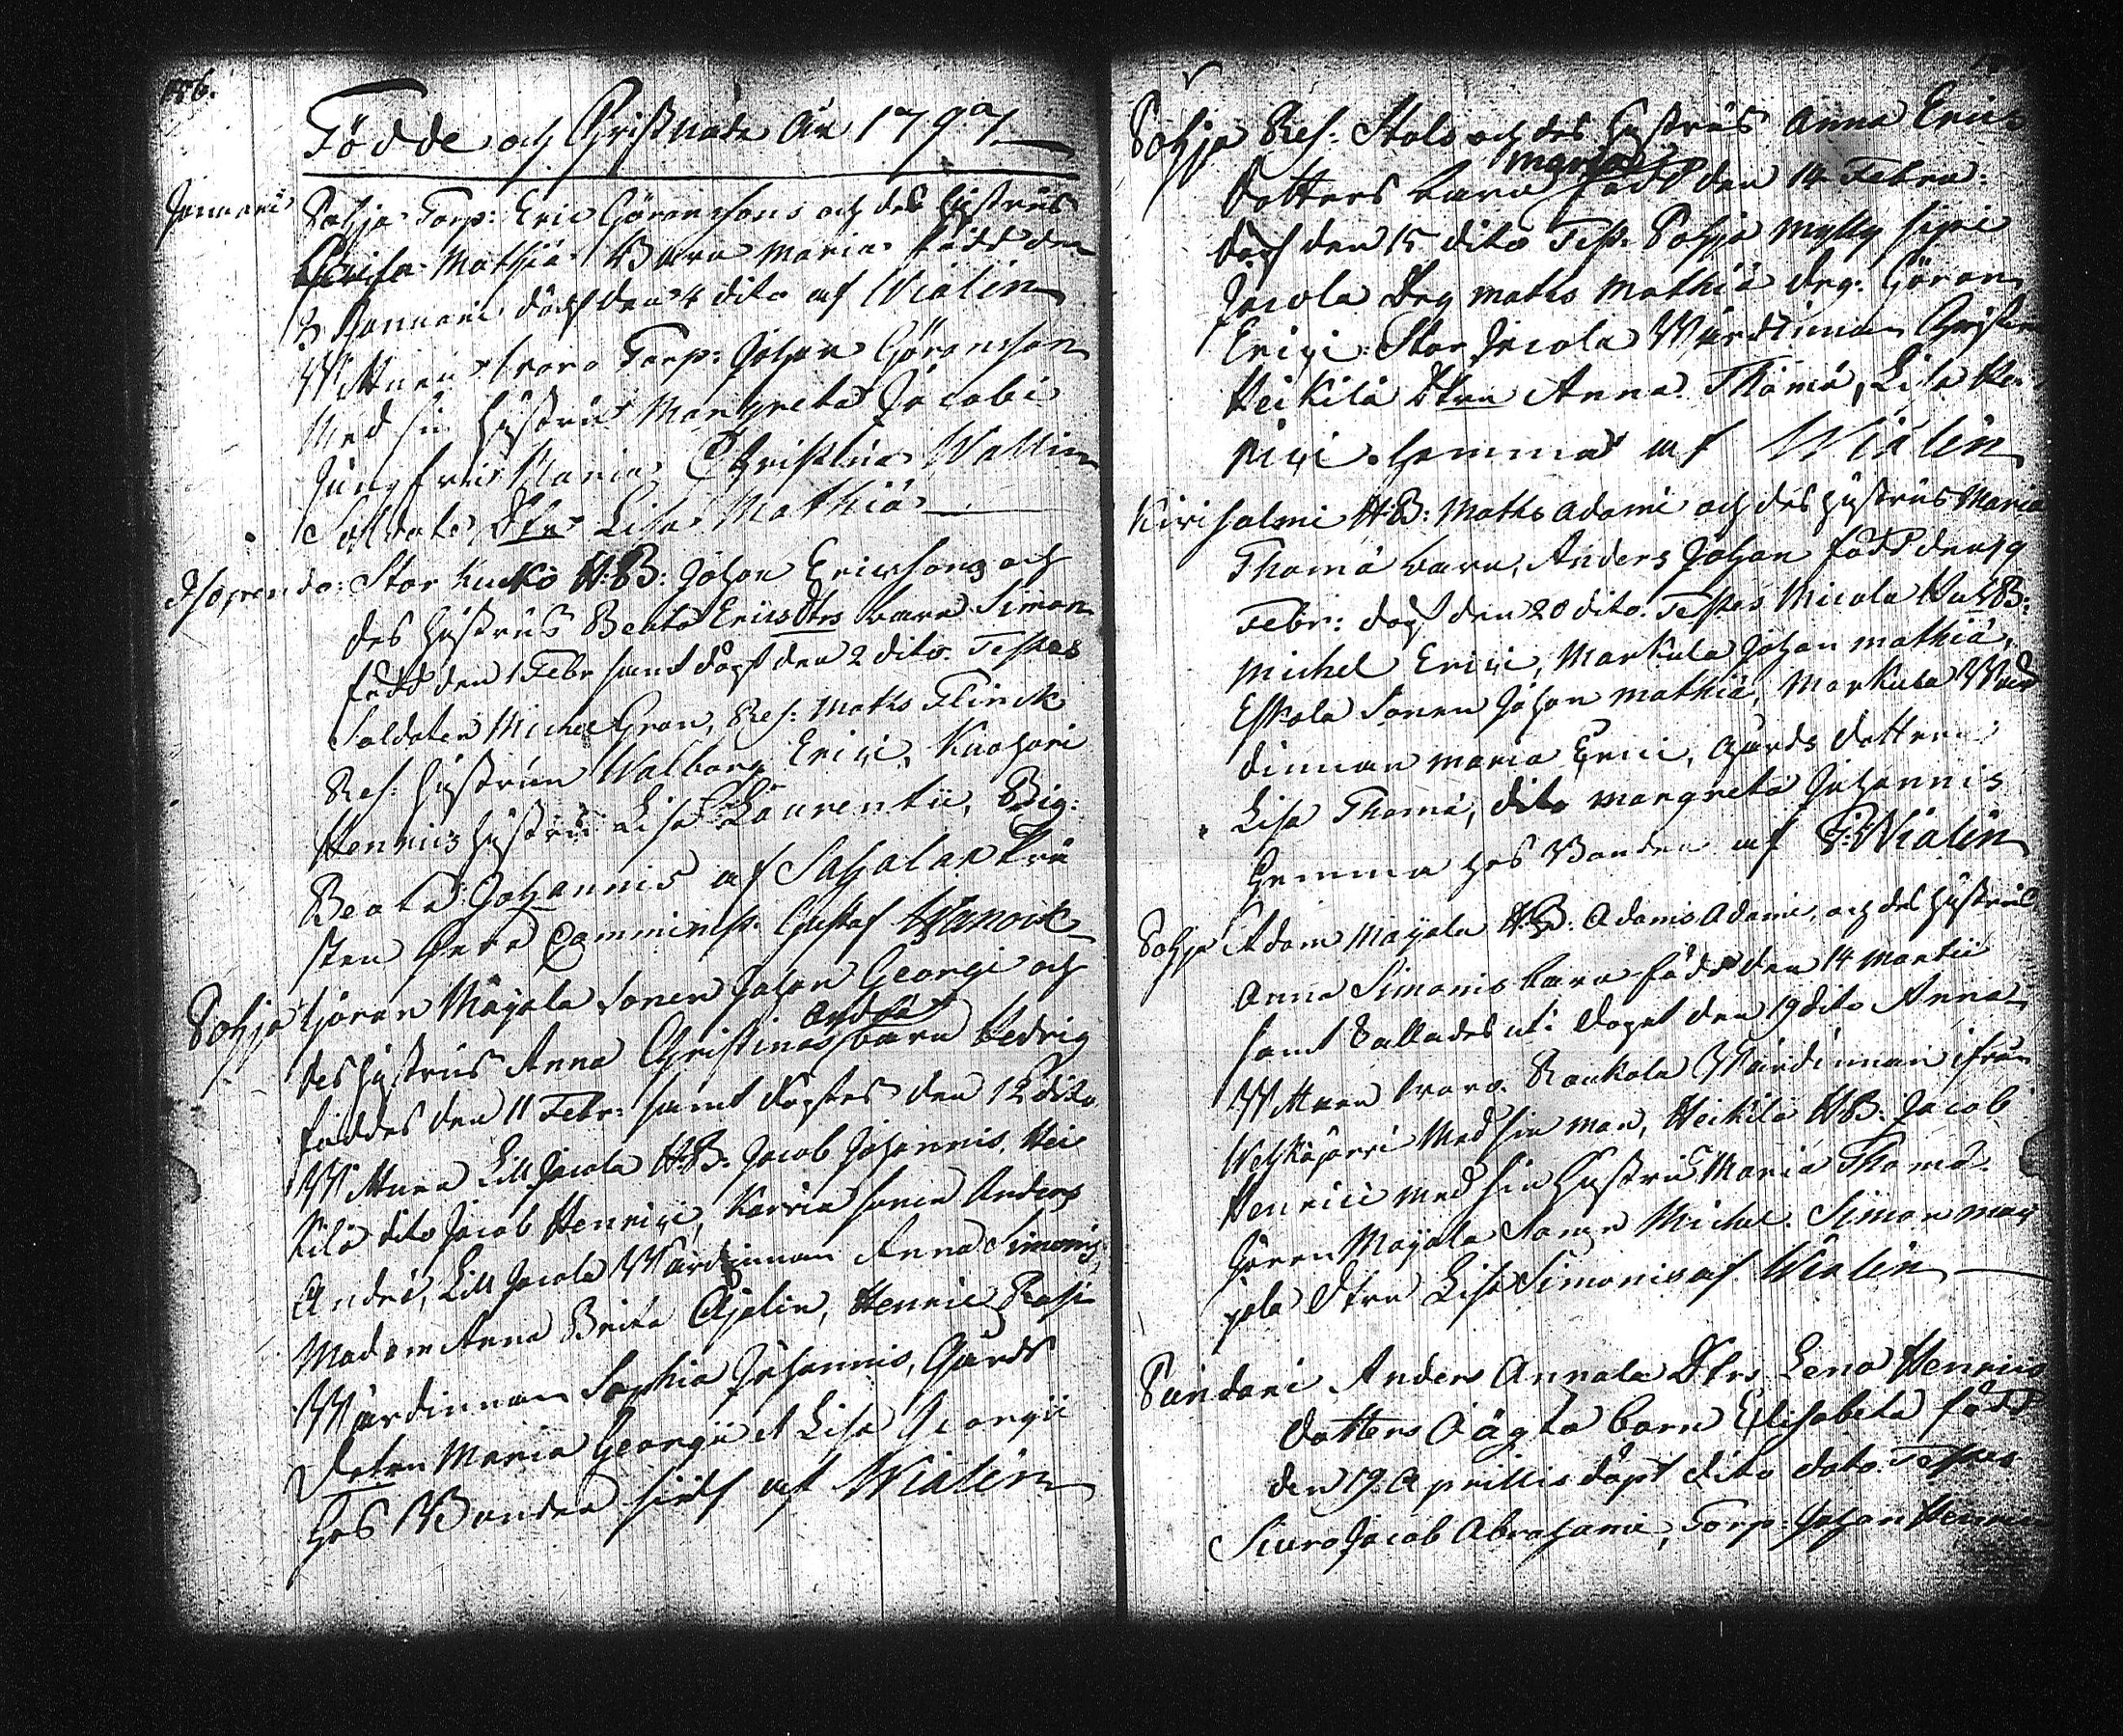 186.
Födde och Christnade År 1797
Januari Sohjo Torp: Eric Göranssons och des hustrus
Caisa Mathiæ Barn Maria född den
3 Januari döpt den 4 dito af Wialin
Wittnen woro Torp: Johan Göransson
Med sin hustru Margreta Jacobi
Jungfru Maria Christina Wallin
Soldats Dtr Lisa Mathiæ
Isoprendo: Stor Kuckö H:B: Johan Ericssons och
des hustrus Beata Erics Dtrs barn Simon
född den 1 Febr samt döpt den 2 dito. Testes
Soldaten Michel Gran, Res: Maths Flinck
Res: hustrun Walborg Erici, Kuohari
Henrics hustru Lisa Laurentii, Pig:
Beata Johannis af Sahalax Prä
sten Herr Comminist. Gustaf
Sohjo Göran Mäyälä Sonen Johan Georgi och
des hustrus Anna Christinas Andræ barn Hedvig
föddes den 11 Febr: samt döptes den 12 dito
Wittnen Lill Jacola H:B: Jacob Johannis, Hei
kilä dito Jacob Henrici, Karvia sonen Anders
Andræ, Lill Jacola Wärdinnan Anna Simonis
Madam Anna Brita Ajalin, Henric Pasi
Wärdinnan Sophia Johannis, Gårds
Dotren Maria Georgii et Lisa Georgii
hos Bonden sielf af Wialin
Sohjo Res: Stolo och des hustrus Anna Erics
Dotters barn Maria född den 14 Febru:
döpt den 15 dito Test. Sohjo Mylly
Jacola Drg Maths Mathiæ drg: Göran
Erici Stor Jacola Wärdinnan Christin
Heikilä Dtrn Anna Thomæ, Lisa Hen
rici. hemma af Wialin
Kirisalmi H:B: Maths Adami och des hustrus Maria
Thomæ barn, Anders Johan född den 19
Febr: döpt den 20 dito. Testes Micola H:B:
Michel Erici, Markula Johan Mathiæ,
Eskola Sonen Johan Mathiæ, Markula Wär
dinnan Maria Erici, Gårds dottren
Lisa Thomæ, dito Margreta Johannis
hemma hos Bonden af P: Wialin
Sohjo Adam Mäyälä H:B: Adams Adami, och des hustrus
Anna Simonis barn född den 14 Martii
samt kallades uti dopet den 19 dito Anna
Wittnen woro. Raukola Wärdinnan ifrån
Wehkajärvi Med sin man, Heikilä H:B: Jacob
Henrici med sin hustru Maria Thomæ.
Göran Mäyälä Sonen Michel. Simon Mäy
jälä Dtrn Lisa Simonis af Wialin
Pundari Anders Annala Dtrs Lena Henrics
dotters Oägta barn Elisabeta född
den 19. Aprillis döpt dito dato. Testes
Siuro Jacob Abrahami, Torp: Johan Henrici